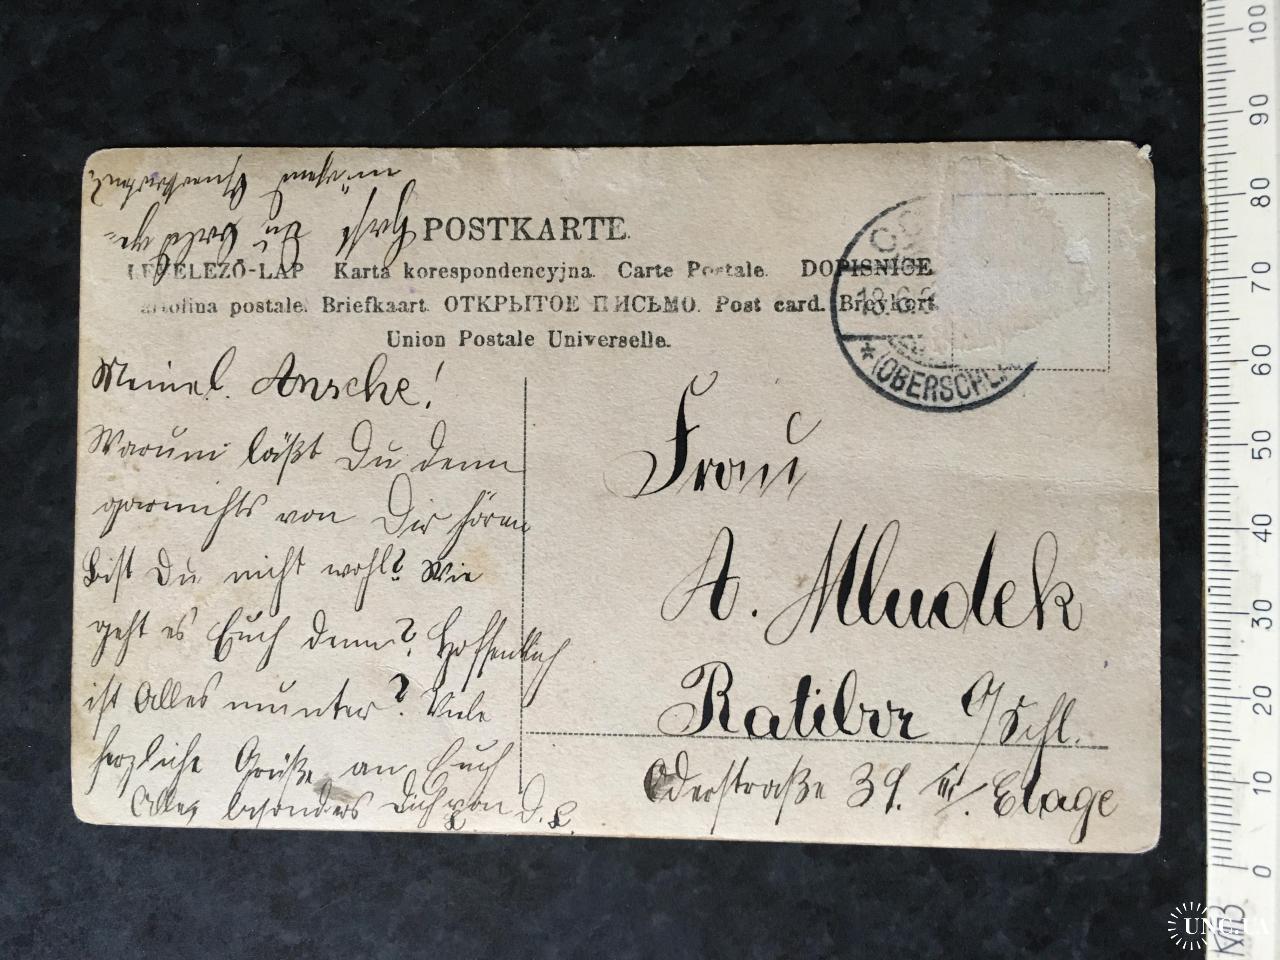 POSTKARTE.
LEVELEZŐ-LAP Karta korespondencyjna. Carte Postale. DOPISNICE
Cartolina postale. Briefkaart. ОТКРЫТОЕ ПИСЬМО. Post card. Brevkort
Union Postale Universelle.
18.6.
*(OBERSCHL.
Meine l. Ansche!
Warum läßt Du denn
garnichts von Dir hören
Bist Du nicht wohl? Wie
geht es Euch denn? Hoffentlich
ist Alles munter? Viele
herzliche Grüße an Euch
Alle, besonders Dich von D. L.
Hast Du
Frau
A. Mludek
Ratibor O/Schl.
Oderstraße 39. III. Etage
100
90
80
70
60
50
40
30
20
10
0
UNC.UA